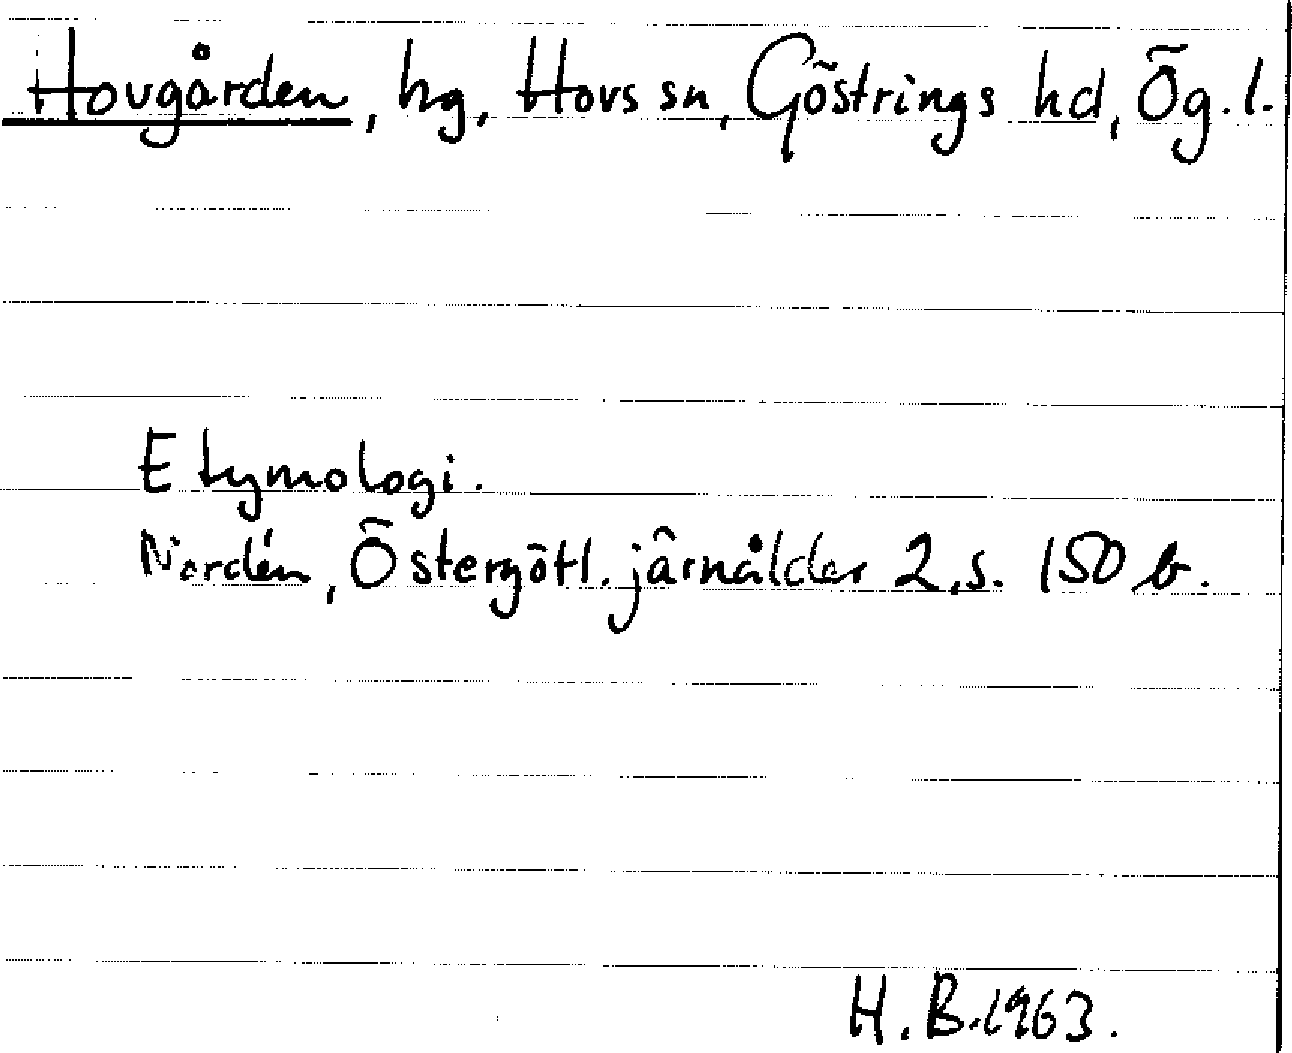 Hovgården, hg, Hovs sn, Göstrings hd, Ög. l.
Etymologi.
Nordén, Östergötl. järnålder 2, s. 150 b.
H. B. 1963.